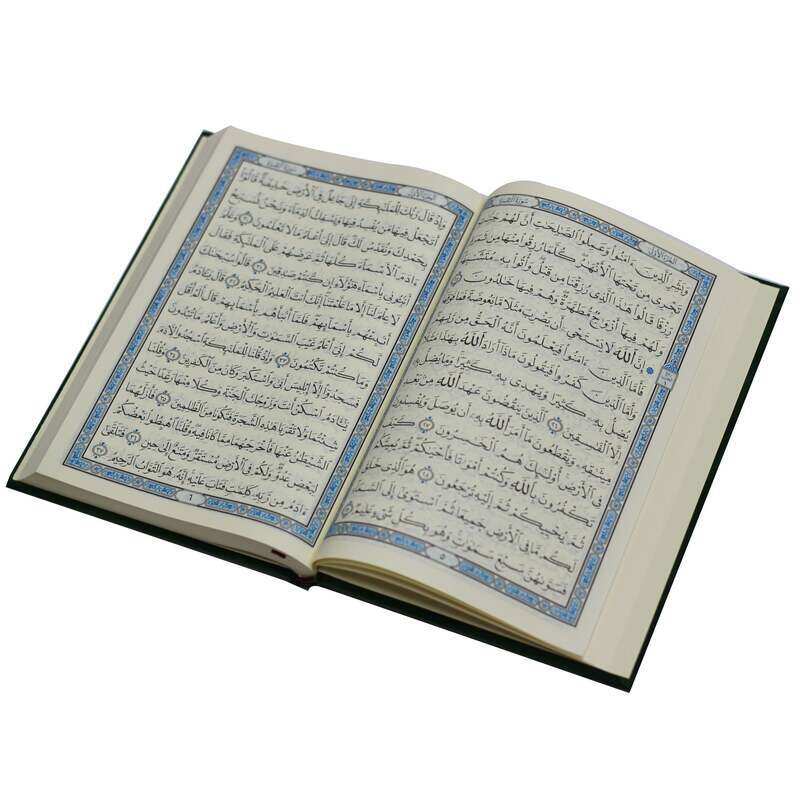 سُورَةُ البَقَرَةِ
الجُزْءُ الأَوَّلُ
وَبَشِّرِ ٱلَّذِينَ ءَامَنُوا۟ وَعَمِلُوا۟ ٱلصَّـٰلِحَـٰتِ أَنَّ لَهُمْ جَنَّـٰتٍ
تَجْرِى مِن تَحْتِهَا ٱلْأَنْهَـٰرُ كُلَّمَا رُزِقُوا۟ مِنْهَا مِن ثَمَرَةٍ
رِّزْقًا قَالُوا۟ هَـٰذَا ٱلَّذِى رُزِقْنَا مِن قَبْلُ وَأُتُوا۟ بِهِۦ مُتَشَـٰبِهًا
وَلَهُمْ فِيهَآ أَزْوَٰجٌ مُّطَهَّرَةٌ وَهُمْ فِيهَا خَـٰلِدُونَ ٢٥
إِنَّ ٱللَّهَ لَا يَسْتَحْىِۦٓ أَن يَضْرِبَ مَثَلًا مَّا بَعُوضَةً فَمَا فَوْقَهَا
فَأَمَّا ٱلَّذِينَ ءَامَنُوا۟ فَيَعْلَمُونَ أَنَّهُ ٱلْحَقُّ مِن رَّبِّهِمْ
وَأَمَّا ٱلَّذِينَ كَفَرُوا۟ فَيَقُولُونَ مَاذَآ أَرَادَ ٱللَّهُ بِهَـٰذَا مَثَلًا
يُضِلُّ بِهِۦ كَثِيرًا وَيَهْدِى بِهِۦ كَثِيرًا وَمَا يُضِلُّ بِهِۦٓ
إِلَّا ٱلْفَـٰسِقِينَ ٢٦ ٱلَّذِينَ يَنقُضُونَ عَهْدَ ٱللَّهِ مِنۢ بَعْدِ
مِيثَـٰقِهِۦ وَيَقْطَعُونَ مَآ أَمَرَ ٱللَّهُ بِهِۦٓ أَن يُوصَلَ وَيُفْسِدُونَ
فِى ٱلْأَرْضِ أُو۟لَـٰٓئِكَ هُمُ ٱلْخَـٰسِرُونَ ٢٧ كَيْفَ
تَكْفُرُونَ بِٱللَّهِ وَكُنتُمْ أَمْوَٰتًا فَأَحْيَـٰكُمْ ثُمَّ يُمِيتُكُمْ
ثُمَّ يُحْيِيكُمْ ثُمَّ إِلَيْهِ تُرْجَعُونَ ٢٨ هُوَ ٱلَّذِى خَلَقَ
لَكُم مَّا فِى ٱلْأَرْضِ جَمِيعًا ثُمَّ ٱسْتَوَىٰٓ إِلَى ٱلسَّمَآءِ
فَسَوَّىٰهُنَّ سَبْعَ سَمَـٰوَٰتٍ وَهُوَ بِكُلِّ شَىْءٍ عَلِيمٌ ٢٩
٥
سُورَةُ البَقَرَةِ
الجُزْءُ الأَوَّلُ
وَإِذْ قَالَ رَبُّكَ لِلْمَلَـٰٓئِكَةِ إِنِّى جَاعِلٌ فِى ٱلْأَرْضِ خَلِيفَةً قَالُوٓا۟
أَتَجْعَلُ فِيهَا مَن يُفْسِدُ فِيهَا وَيَسْفِكُ ٱلدِّمَآءَ وَنَحْنُ نُسَبِّحُ
بِحَمْدِكَ وَنُقَدِّسُ لَكَ قَالَ إِنِّىٓ أَعْلَمُ مَا لَا تَعْلَمُونَ ٣٠ وَعَلَّمَ
ءَادَمَ ٱلْأَسْمَآءَ كُلَّهَا ثُمَّ عَرَضَهُمْ عَلَى ٱلْمَلَـٰٓئِكَةِ فَقَالَ
أَنۢبِـُٔونِى بِأَسْمَآءِ هَـٰٓؤُلَآءِ إِن كُنتُمْ صَـٰدِقِينَ ٣١ قَالُوا۟ سُبْحَـٰنَكَ
لَا عِلْمَ لَنَآ إِلَّا مَا عَلَّمْتَنَآ إِنَّكَ أَنتَ ٱلْعَلِيمُ ٱلْحَكِيمُ ٣٢ قَالَ يَـٰٓـَٔادَمُ
أَنۢبِئْهُم بِأَسْمَآئِهِمْ فَلَمَّآ أَنۢبَأَهُم بِأَسْمَآئِهِمْ قَالَ أَلَمْ أَقُل
لَّكُمْ إِنِّىٓ أَعْلَمُ غَيْبَ ٱلسَّمَـٰوَٰتِ وَٱلْأَرْضِ وَأَعْلَمُ مَا تُبْدُونَ
وَمَا كُنتُمْ تَكْتُمُونَ ٣٣ وَإِذْ قُلْنَا لِلْمَلَـٰٓئِكَةِ ٱسْجُدُوا۟ لِـَٔادَمَ
فَسَجَدُوٓا۟ إِلَّآ إِبْلِيسَ أَبَىٰ وَٱسْتَكْبَرَ وَكَانَ مِنَ ٱلْكَـٰفِرِينَ ٣٤ وَقُلْنَا
يَـٰٓـَٔادَمُ ٱسْكُنْ أَنتَ وَزَوْجُكَ ٱلْجَنَّةَ وَكُلَا مِنْهَا رَغَدًا حَيْثُ
شِئْتُمَا وَلَا تَقْرَبَا هَـٰذِهِ ٱلشَّجَرَةَ فَتَكُونَا مِنَ ٱلظَّـٰلِمِينَ ٣٥ فَأَزَلَّهُمَا
ٱلشَّيْطَـٰنُ عَنْهَا فَأَخْرَجَهُمَا مِمَّا كَانَا فِيهِ وَقُلْنَا ٱهْبِطُوا۟ بَعْضُكُمْ
لِبَعْضٍ عَدُوٌّ وَلَكُمْ فِى ٱلْأَرْضِ مُسْتَقَرٌّ وَمَتَـٰعٌ إِلَىٰ حِينٍ ٣٦ فَتَلَقَّىٰٓ
ءَادَمُ مِن رَّبِّهِۦ كَلِمَـٰتٍ فَتَابَ عَلَيْهِ إِنَّهُۥ هُوَ ٱلتَّوَّابُ ٱلرَّحِيمُ ٣٧
٦